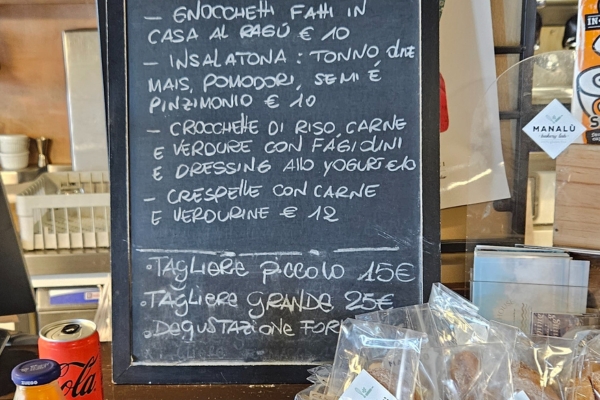 - GNOCCHETTI FATTI IN
CASA AL RAGÙ € 10
- INSALATONA: TONNO OLIVE
MAIS, POMODORI, SEMI E
PINZIMONIO € 10
- CROCCHETTE DI RISO, CARNE
E VERDURE CON FAGIOLINI
E DRESSING ALLO YOGURT €10
- CRESPELLE CON CARNE
E VERDURINE € 12
• TAGLIERE PICCOLO 15€
• TAGLIERE GRANDE 25€
• DEGUSTAZIONE
MANALÙ
Cola